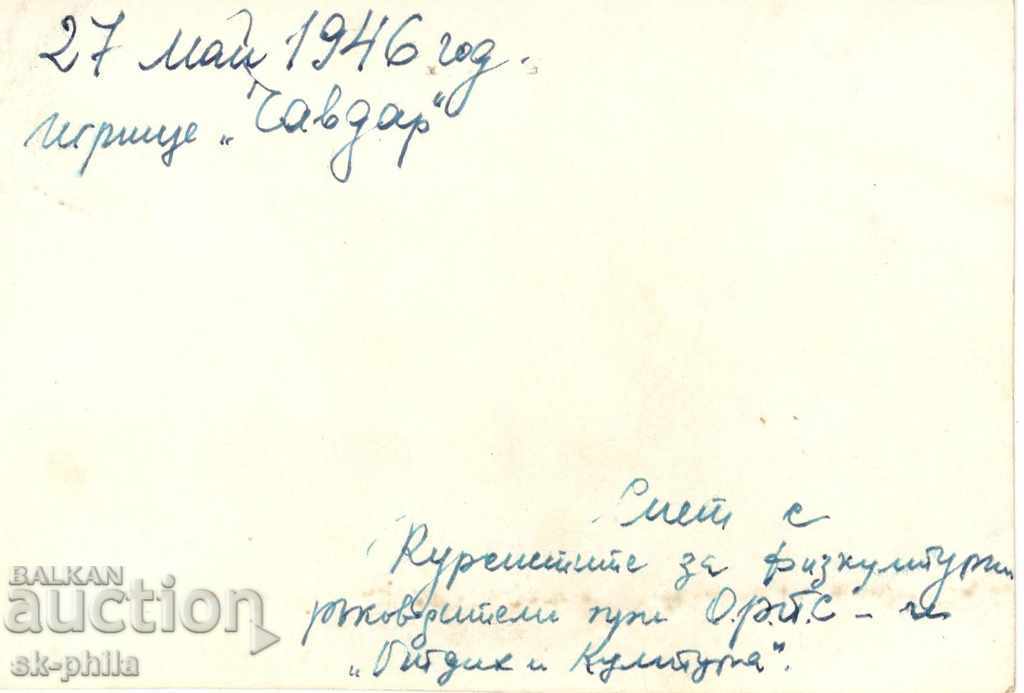 27 май 1946 год.
игрище „Чавдар“
с
Курсистите за физкултурни
ръководители при О.Р.П.С - и
„Отдих и Култура“.
BALKAN
auction
sk-phila